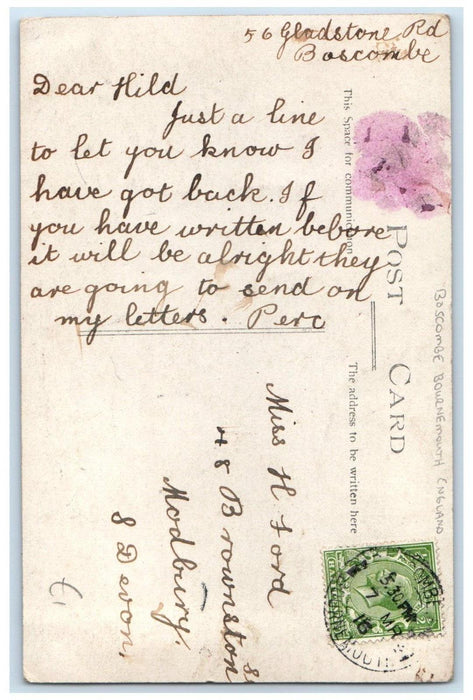 56 Gladstone Rd
Boscombe
Dear Hild
Just a line
to let you know I
have got back. If
you have written before
it will be alright they
are going to send on
my letters. Perc
This Space for communication
POST CARD
The address to be written here
Miss H Ford
48 Brownston St
Modbury.
S Devon.
BOSCOMBE BOURNEMOUTH ENGLAND
5.30 PM
7 MR
16
BOURNEMOUTH